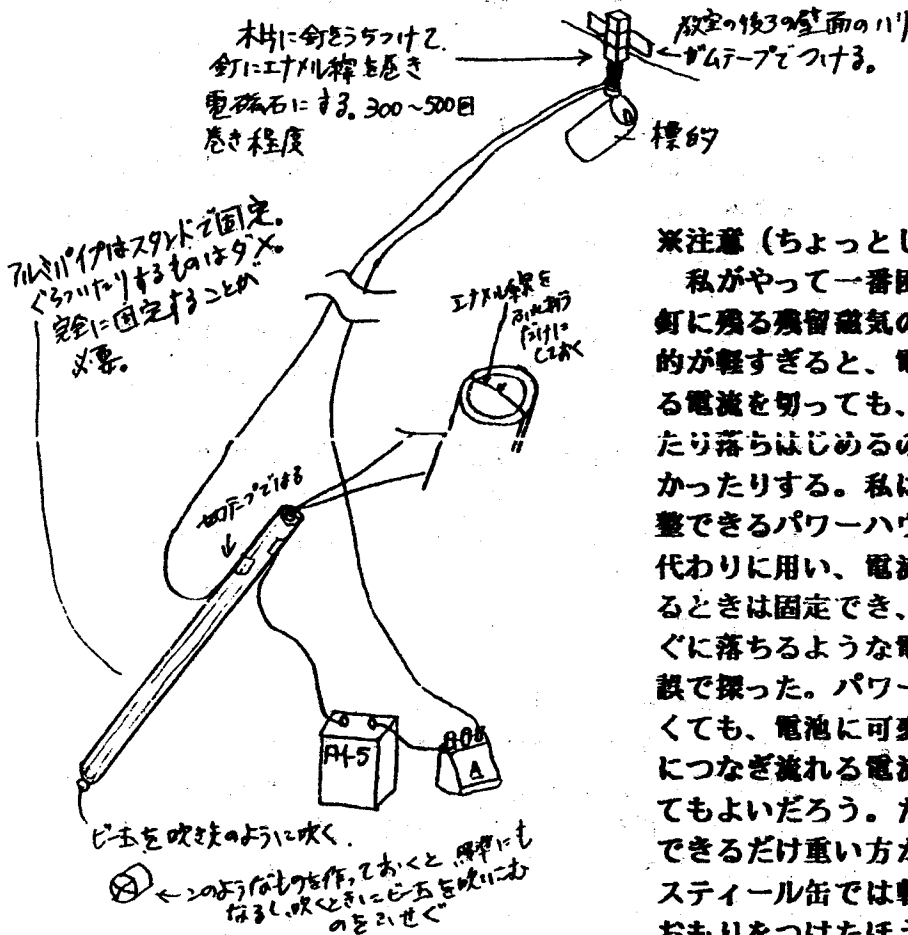 木片に釘をうちつけて、
釘にエナメル線を巻き
電磁石にする。300～500回
巻き程度
教室の後ろの壁面のハリ
ガムテープでつける。
標的
アルミパイプはスタンドで固定。
ぐらついたりするものはダメ。
完全に固定することが
必要。
エナメル線を
ふれ合う
だけに
しておく
セロテープではる
A
ビー玉を吹き矢のように吹く
このようなものを作っておくと、照準にも
なるし、吹くときにビー玉を吸いこむ
のをふせぐ
※注意（ちょっとし
私がやって一番困
釘に残る残留磁気の
的が軽すぎると、電
る電流を切っても、
たり落ちはじめるの
かったりする。私に
整できるパワーハウ
代わりに用い、電流
るときは固定でき、
ぐに落ちるような電
誤で探った。パワー
くても、電池に可変
につなぎ流れる電流
てもよいだろう。た
できるだけ重い方が
スティール缶では軽
おもりをつけたほう